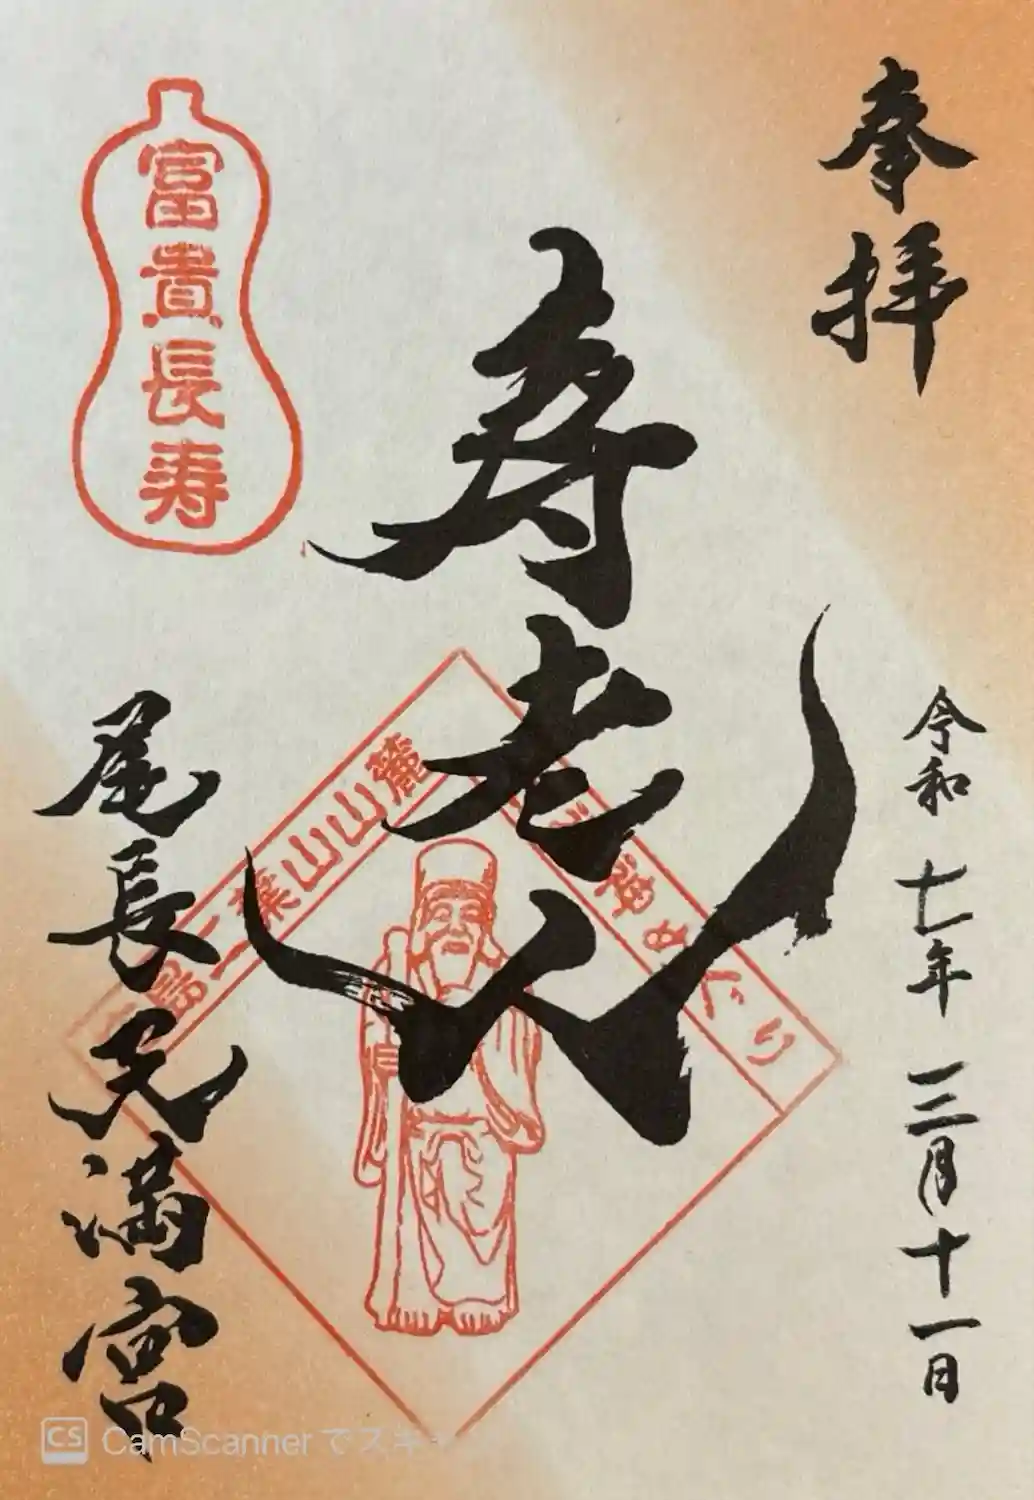 奉拝
寿老人
令和七年三月十一日
富貴長寿
尾長天満宮
二葉山山麓
神めぐり
CS CamScanner でスキ